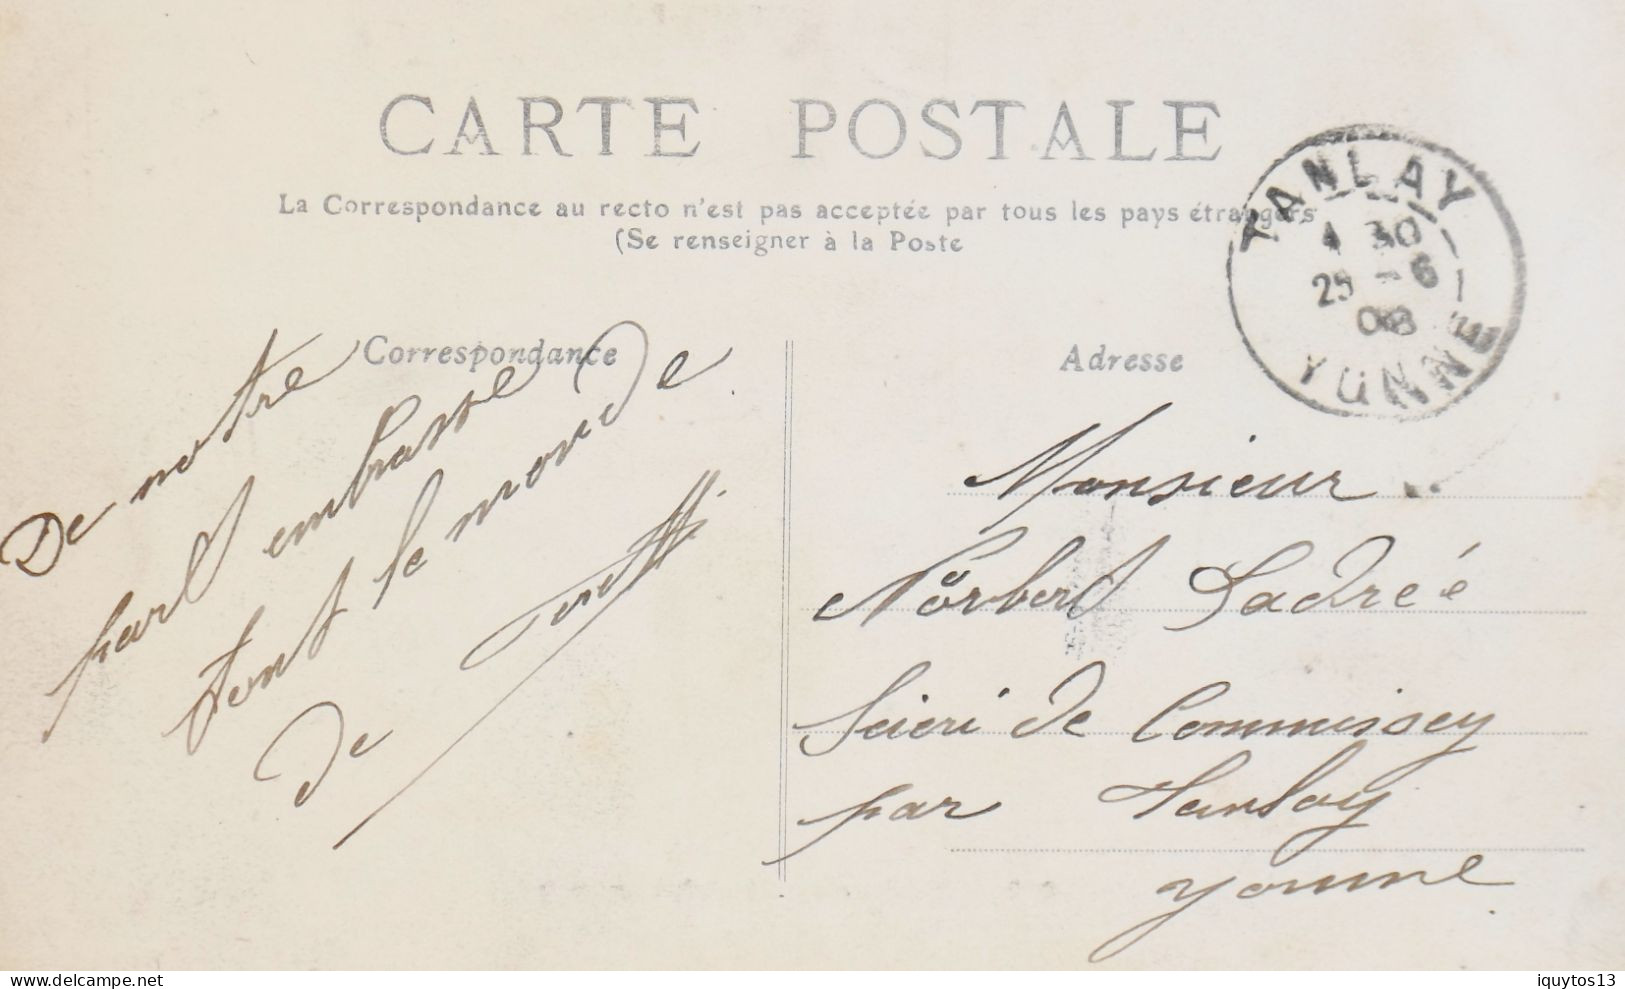 CARTE POSTALE
La Correspondance au recto n'est pas acceptée par tous les pays étrangers
(Se renseigner à la Poste
Correspondance
De notre
part embrasse
tout le monde
de
Adresse
TANLAY
30
25 - 6
08
YONNE
Monsieur
Norbert Ladrée
Scieri de Commissey
par Tanlay
Yonne
delcampe.net
iquytos13